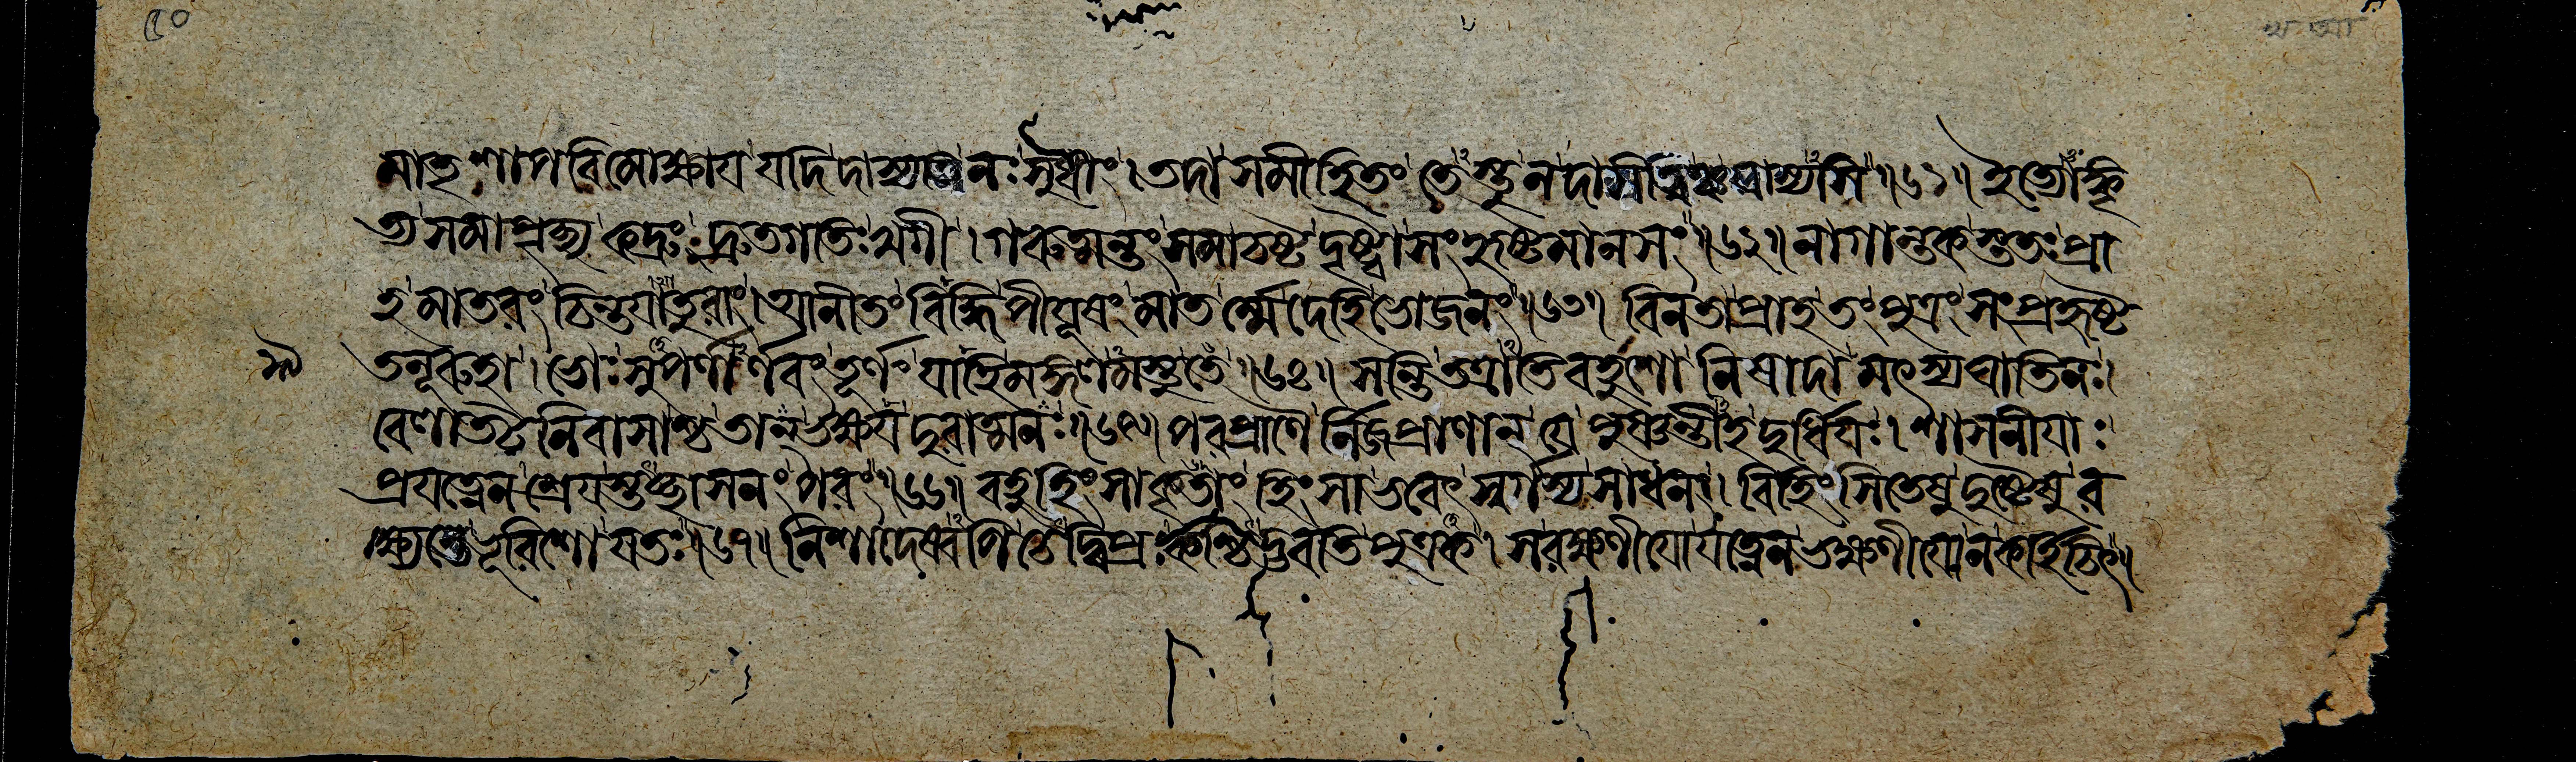 মাতৃশাপবিমোক্ষায যদি দাস্যসি নঃ সুধাং । তদা সমীহিতং তেঽস্তু ন দাসীত্বঞ্চ যাস্যসি ॥ ৬১ ॥ ইত্যোংকৃ
ত্য সমাপৃচ্ছ্য কদ্রূং দ্রুতগতিঃ খগী । গরুত্মন্তং সমাচষ্ট দৃষ্ট্বা সংহৃষ্টমানসং ॥ ৬২ ॥ নাগান্তকস্ততঃ প্রা
হ মাতরং চিন্তযাতুরাং । আনীতং বিদ্ধি পীযূষং মাতর্ম্মে দেহি ভোজনং ॥ ৬৩ ॥ বিনতা প্রাহ তং পুত্রং সংপ্রহৃষ্ট
তনূরুহা । ভোঃ সুপর্ণার্ণবং তূর্ণং যাহি মঙ্গলমস্তু তে ॥ ৬৪ ॥ সন্তি তত্রাতি বহুশো নিষাদা মৎস্যঘাতিনঃ ।
বেলাতটনিবাসাশ্চ তান্ ভক্ষয দুরাত্মনঃ ॥ ৬৫ ॥ পরপ্রাণৈর্নিজপ্রাণান্ যে পুষ্ণন্তীহ দুর্ধিযঃ । শাসনীযাঃ
প্রযত্নেন শ্রেযস্তচ্ছাসনং পরং ॥ ৬৬ ॥ বহুহিংসাকৃতাং হিংসা ভবেৎ স্বর্গস্য সাধনং । বিহিংসিতেষু দুষ্টেষু র
ক্ষ্যন্তে ভূরিশো যতঃ ॥ ৬৭ ॥ নিশাদেষ্বপি চেদ্বিপ্রঃ কশ্চিদ্ভবতি পুত্রক । স রক্ষণীযো যত্নেন ভক্ষণীযো ন কর্হিচিৎ ॥